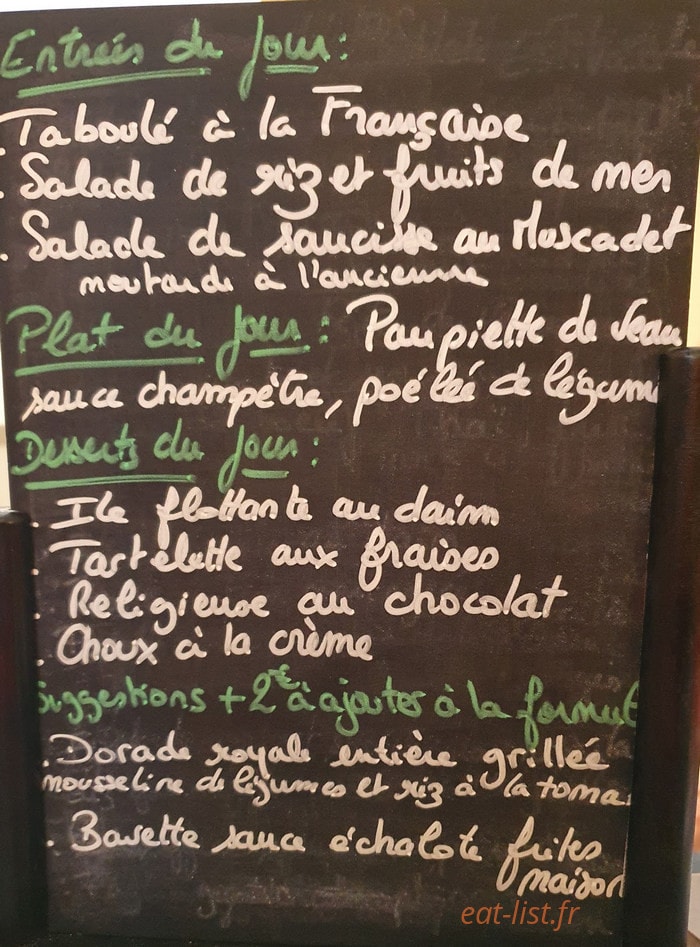 Entrées du Jour :
. Taboulé à la Française
. Salade de riz et fruits de mer
. Salade de saucisse au Muscadet
moutarde à l'ancienne
Plat du Jour : Paupiette de Veau
sauce champêtre, poélée de légum
Desserts du Jour :
. Ile flottante au daim
. Tartelette aux fraises
. Religieuse au chocolat
. Choux à la crème
Suggestions + 2€ à ajouter à la formul
. Dorade royale entière grillée
mousseline de légumes et riz à la toma
. Bavette sauce échalote frites
maison
eat-list.fr